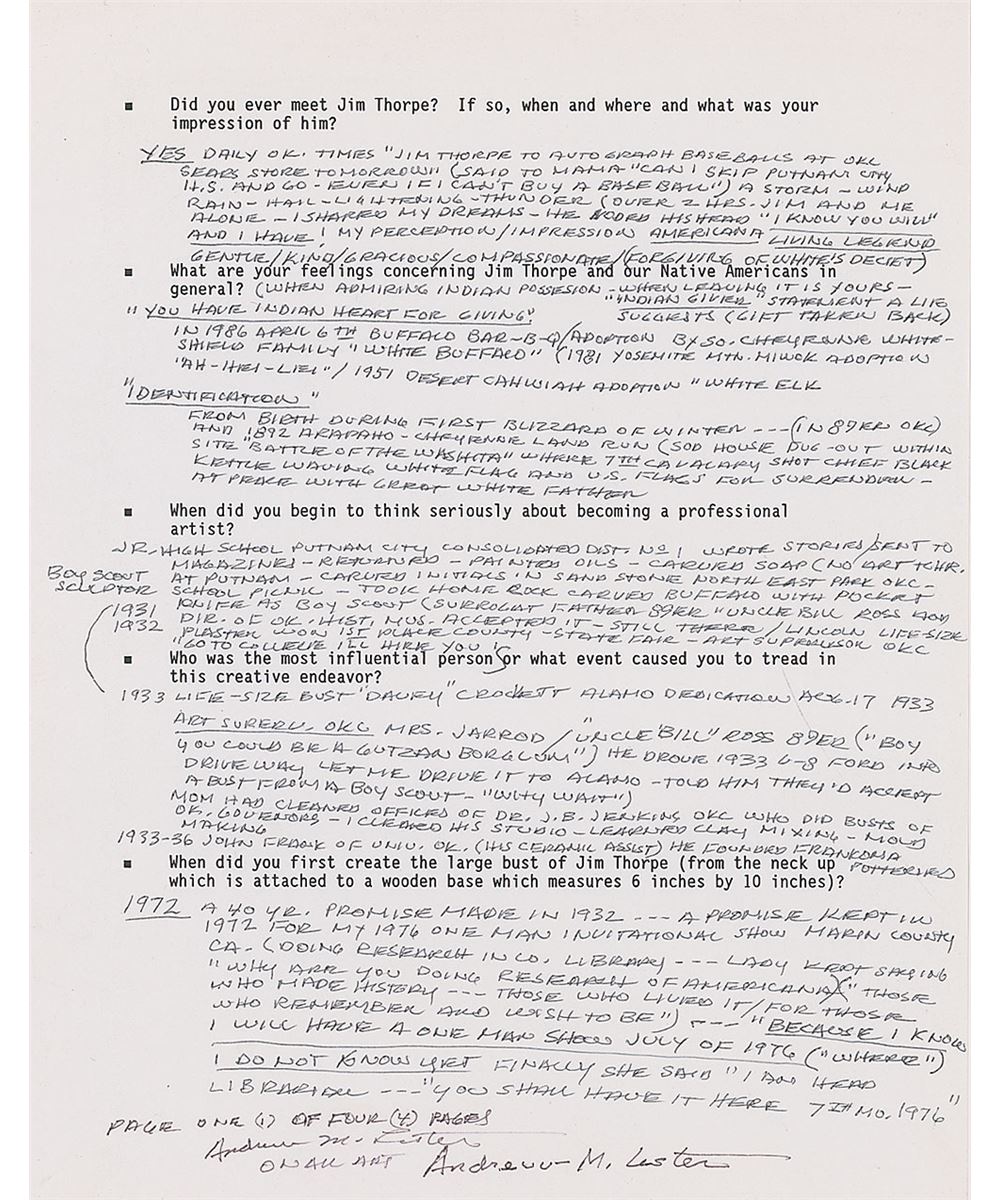 ▪ Did you ever meet Jim Thorpe? If so, when and where and what was your
impression of him?
YES DAILY OK. TIMES "JIM THORPE TO AUTOGRAPH BASEBALLS AT OKC
SEARS STORE TOMORROW" (SAID TO MAMA "CAN I SKIP PUTNAM CITY
H.S. AND GO - EVEN IF I CAN'T BUY A BASEBALL") A STORM - WIND
RAIN - HAIL - LIGHTENING - THUNDER (OVER 2 HRS. JIM AND ME
ALONE - I SHARED MY DREAMS - HE NODED HIS HEAD "I KNOW YOU WILL"
AND I HAVE! MY PERCEPTION/IMPRESSION AMERICANA LIVING LEGEND
GENTLE/KIND/GRACIOUS/COMPASSIONATE/(FORGIVING OF WHITE'S DECIET)
▪ What are your feelings concerning Jim Thorpe and our Native Americans in
general? (WHEN ADMIRING INDIAN POSSESION - WHEN LEAVING IT IS YOURS -
"INDIAN GIVER" STATEMENT A LIE
"YOU HAVE INDIAN HEART FOR GIVING" SUGGESTS (GIFT TAKEN BACK)
IN 1986 APRIL 6TH BUFFALO BAR-B-Q/ADOPTION BY SO. CHEYENNE WHITE-
SHIELD FAMILY "WHITE BUFFALO" (1981 YOSEMITE MTN. MIWOK ADOPTION
"AH-HEI-LIEI"/1951 DESERT CAHUIAH ADOPTION "WHITE ELK
"IDENTIFICATION"
FROM BIRTH DURING FIRST BLIZZARD OF WINTER --- (IN 89ER OKC)
AND 1892 ARAPAHO-CHEYENNE LAND RUN (SOD HOUSE DUG-OUT WITHIN
SITE "BATTLE OF THE WASHITA" WHERE 7TH CAVALARY SHOT CHIEF BLACK
KETTLE WAVING WHITE FLAG AND U.S. FLAGS FOR SURRENDER -
AT PEACE WITH GREAT WHITE FATHER
▪ When did you begin to think seriously about becoming a professional
artist?
JR. HIGH SCHOOL PUTNAM CITY CONSOLIDATED DIST. NO 1 WROTE STORIES/SENT TO
MAGAZINES - RETURNED - PAINTED OILS - CARVED SOAP (NO ART TCHR.
BOY SCOUT AT PUTNAM - CARVED INITIALS IN SAND STONE NORTH EAST PARK OKC -
SCULPTOR SCHOOL PICNIC - TOOK HOME ROCK CARVED BUFFALO WITH POCKET
1931 KNIFE AS BOY SCOUT (SURROGAT FATHER 89ER "UNCLE BILL ROSS AND
1932 DIR. OF OK. HIST. MUS. ACCEPTED IT - STILL THERE/LINCOLN LIFE-SIZE
PLASTER WON 1ST PLACE COUNTY - STATE FAIR - ART SUPERVISOR OKC
"GO TO COLLEGE I'LL HIRE YOU"
▪ Who was the most influential person or what event caused you to tread in
this creative endeavor?
1933 LIFE-SIZE BUST "DAVEY" CROCKETT ALAMO DEDICATION AUG. 17 1933
ART SUPERV. OKC MRS. JARROD/"UNCLE BILL" ROSS 89ER ("BOY
YOU COULD BE A GUTZAN BORGLUM") HE DROVE 1933 4-8 FORD INTO
DRIVE WAY LET ME DRIVE IT TO ALAMO - TOLD HIM THEY'D ACCEPT
A BUST FROM A BOY SCOUT - "WHY WAIT")
MOM HAD CLEANED OFFICES OF DR. J.B. JENKINS OKC WHO DID BUSTS OF
OK. GOVERNORS - I CLEANED HIS STUDIO - LEARNED CLAY MIXING - MOLD
MAKING
1933-36 JOHN FRANK OF UNIV. OK. (HIS CERAMIC ASSIST) HE FOUNDED FRANKOMA
POTTERIES
▪ When did you first create the large bust of Jim Thorpe (from the neck up
which is attached to a wooden base which measures 6 inches by 10 inches)?
1972 A 40 YR. PROMISE MADE IN 1932 --- A PROMISE KEPT IN
1972 FOR MY 1976 ONE MAN INVITATIONAL SHOW MARIN COUNTY
CA. (DOING RESEARCH IN CO. LIBRARY --- LADY KEPT SAYING
"WHY ARE YOU DOING RESEARCH OF AMERICANA" "THOSE
WHO MADE HISTORY --- THOSE WHO LIVED IT/FOR THOSE
WHO REMEMBER AND WISH TO BE") --- "BECAUSE I KNOW
I WILL HAVE A ONE MAN SHOW JULY OF 1976 ("WHERE")
I DO NOT KNOW YET FINALLY SHE SAID "I AM HEAD
LIBRARIAN --- "YOU SHALL HAVE IT HERE 7TH MO. 1976"
PAGE ONE (1) OF FOUR (4) PAGES
Andrew M. Lester
ON ALL ART Andrew M. Lester